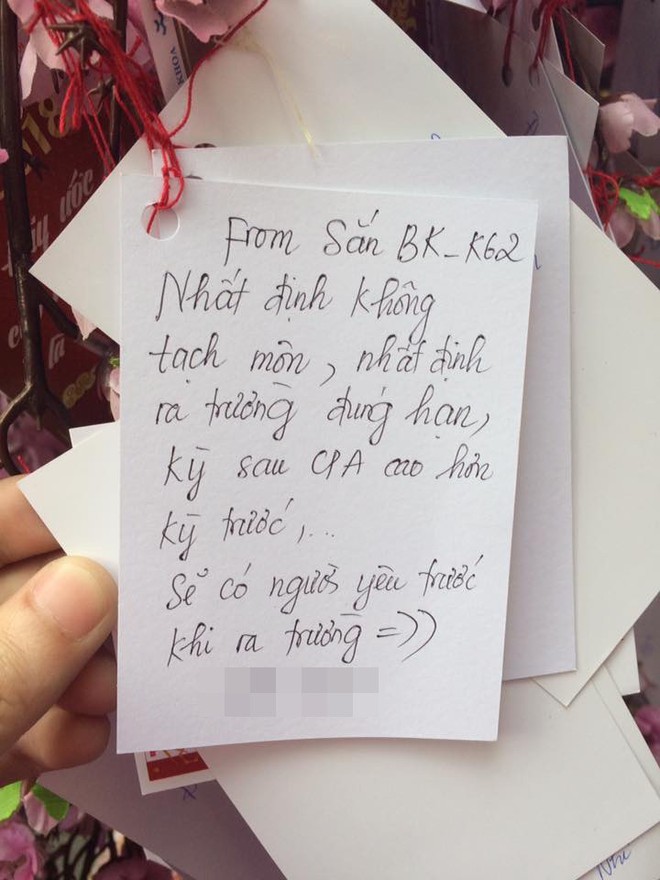 From Sắn BK_K62
Nhất định không
tạch môn, nhất định
ra trường đúng hạn,
kỳ sau CPA cao hơn
kỳ trước,...
Sẽ có người yêu trước
khi ra trường =))
KHOA